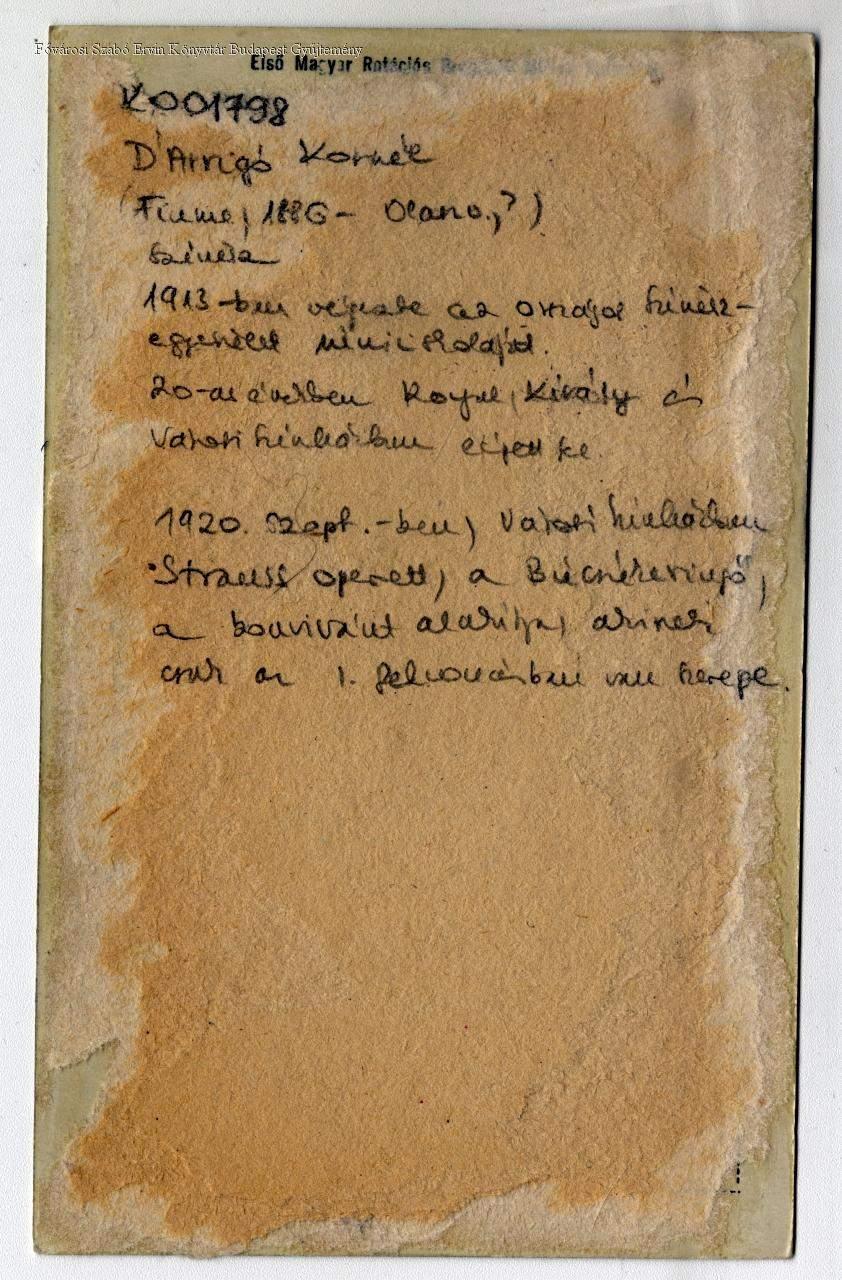 Fővárosi Szabó Ervin Könyvtár Budapest Gyűjtemény
Első Magyar Rotációs
K001798
D'Arrigó Kornél
(Fiume, 1886 - Olaszo., ?)
színész
1913-ban végezte az Országos Színész-
egyesület színiiskoláját.
20-as években Royal, Király és
Városi Színházban lépett fel.
1920. szept.-ben, Városi Színházban
Strauss operett, a Búcsúkeringő,
a bonvivánt alakítja, akinek
csak az 1. felvonásban van szerepe.